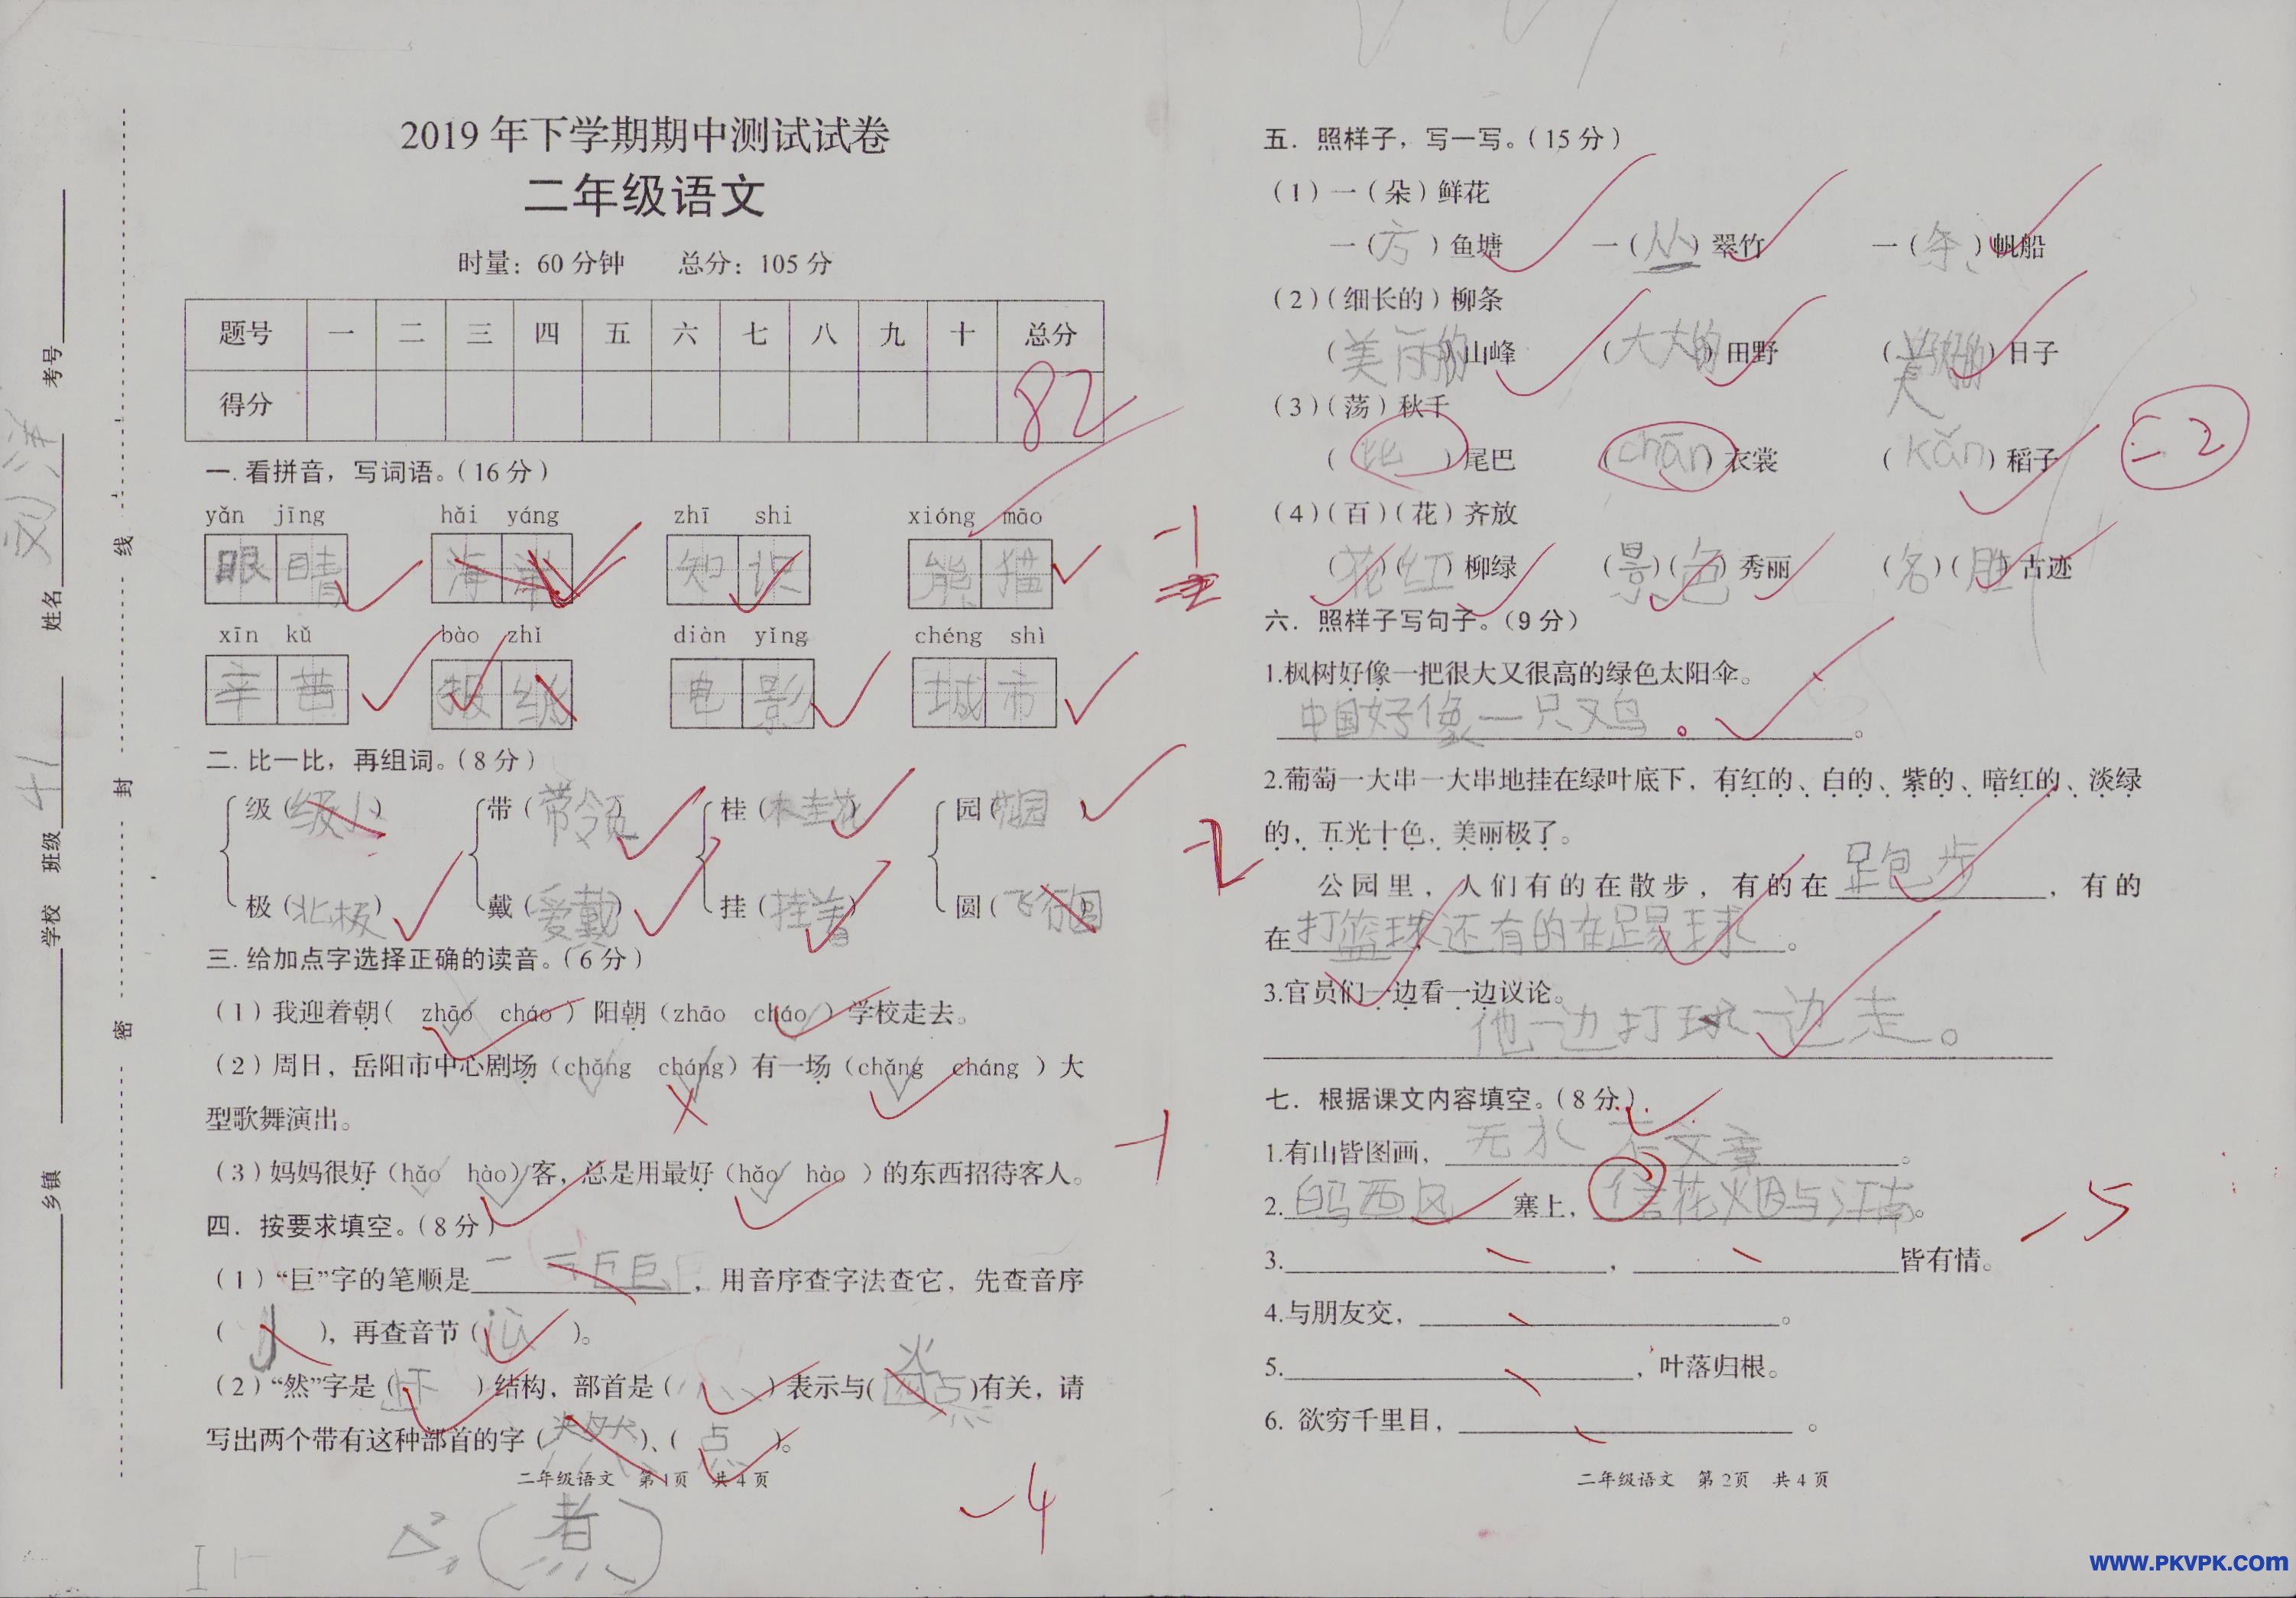 考号
姓名 刘洋
班级
学校
乡镇
线
封
密
2019 年下学期期中测试试卷
二年级语文
时量：60 分钟 总分：105 分
题号 一 二 三 四 五 六 七 八 九 十 总分
得分 82
一.看拼音，写词语。（16 分）
yǎn jīng hǎi yáng zhī shi xióng māo
眼 睛 海 洋 知 识 熊 猫
-1
xīn kǔ bào zhǐ diàn yǐng chéng shì
辛 苦 报 纸 电 影 城 市
二.比一比，再组词。（8 分）
级（级小） 带（带领） 桂（桂花） 园（花园）
极（北极） 戴（爱戴） 挂（挂着） 圆（飞行圆）
-2
三.给加点字选择正确的读音。（6 分）
（1）我迎着朝（ zhāo cháo ）阳朝（zhāo cháo ）学校走去。
（2）周日，岳阳市中心剧场（chǎng cháng）有一场（chǎng cháng ）大
型歌舞演出。
（3）妈妈很好（hǎo hào）客，总是用最好（hǎo hào ）的东西招待客人。
-1
四．按要求填空。（8 分）
（1）“巨”字的笔顺是 ，用音序查字法查它，先查音序
（ J ），再查音节（ ）。
（2）“然”字是（上下）结构，部首是（灬）表示与（ ）有关，请
写出两个带有这种部首的字（然）、（点）。
二年级语文 第 1页 共 4 页
（煮）
-4
五．照样子，写一写。（15 分）
（1）一（朵）鲜花
一（方）鱼塘 一（丛）翠竹 一（条）帆船
（2）（细长的）柳条
（美丽的）山峰 （大大的）田野 （ ）日子
（3）（荡）秋千
（比）尾巴 （chān）衣裳 （kǎn）稻子
-2
（4）（百）（花）齐放
（花）（红）柳绿 （景）（色）秀丽 （名）（胜）古迹
六．照样子写句子。（9 分）
1.枫树好像一把很大又很高的绿色太阳伞。
中国好像一只又鸟。
2.葡萄一大串一大串地挂在绿叶底下，有红的、白的、紫的、暗红的、淡绿
的，五光十色，美丽极了。
公园里，人们有的在散步，有的在跑步，有的
在打篮球，还有的在踢球。
3.官员们一边看一边议论。
他一边打球一边走。
七．根据课文内容填空。（8 分）
1.有山皆图画，无水不文章。
2.白马西风塞上，信花烟与江南。
-5
3. ， 皆有情。
4.与朋友交， 。
5. ，叶落归根。
6. 欲穷千里目， 。
二年级语文 第 2页 共 4 页
www.PKVPK.com